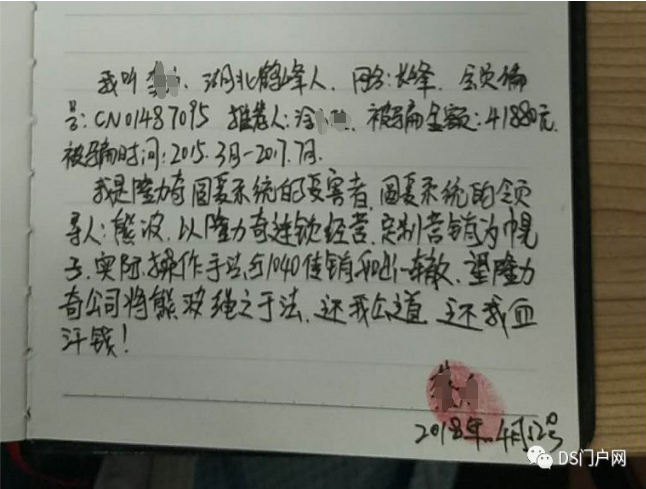 我叫李、湖北鹤峰人、网络:长峰、会员编
号:CN01487095 推荐人:冷 被骗金额:41880元.
被骗时间:2015.3月-2017.7月.
我是隆力奇圆爱系统的受害者.圆爱系统的领
导人:熊波.以隆力奇连锁经营.定制营销为幌
子.实际操作手法与1040传销如出一辙.望隆力
奇公司将熊波绳之于法、还我公道 还我血
汗钱!
2018年4月12号
DS门户网